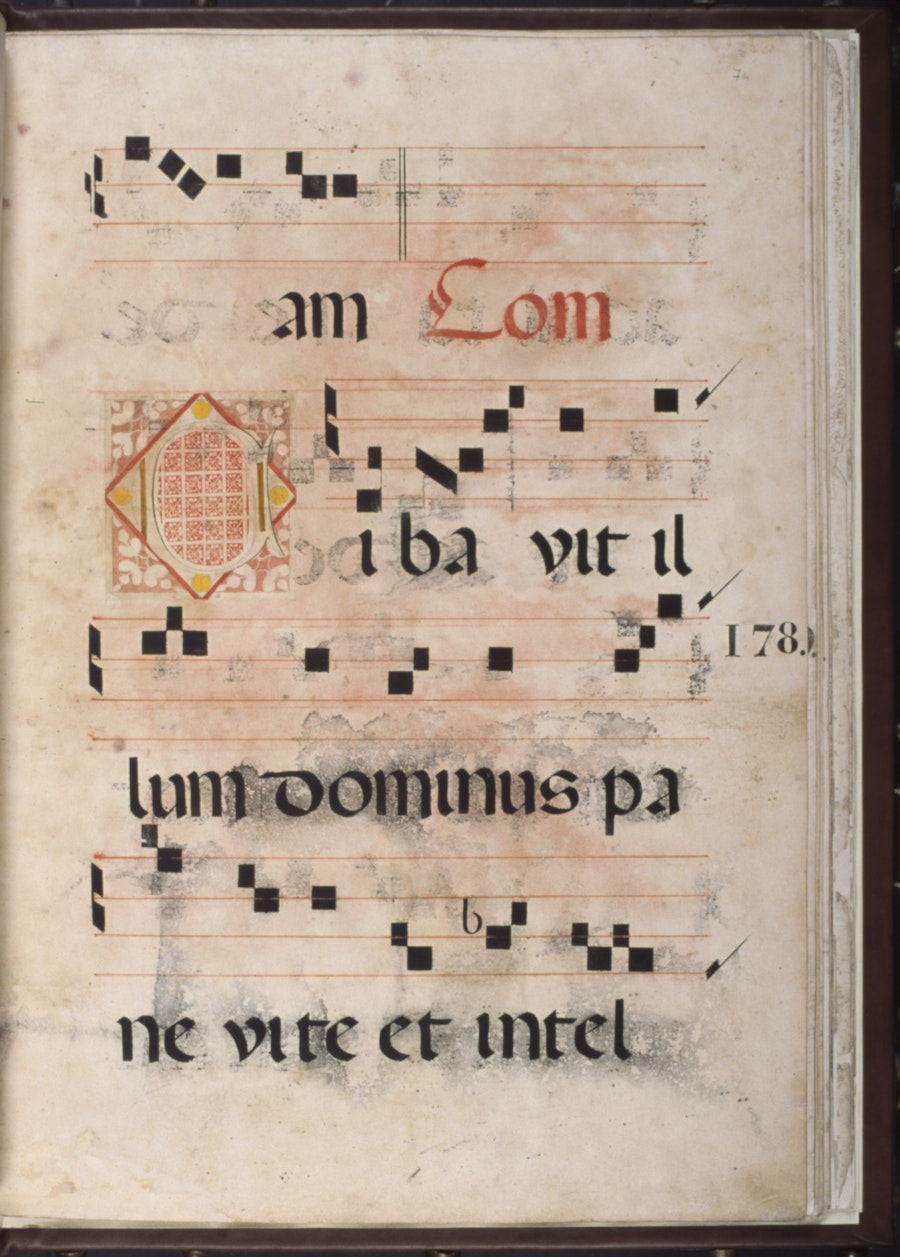 74
am Com
Ciba vit il
178.
lum dominus pa
ne vite et intel